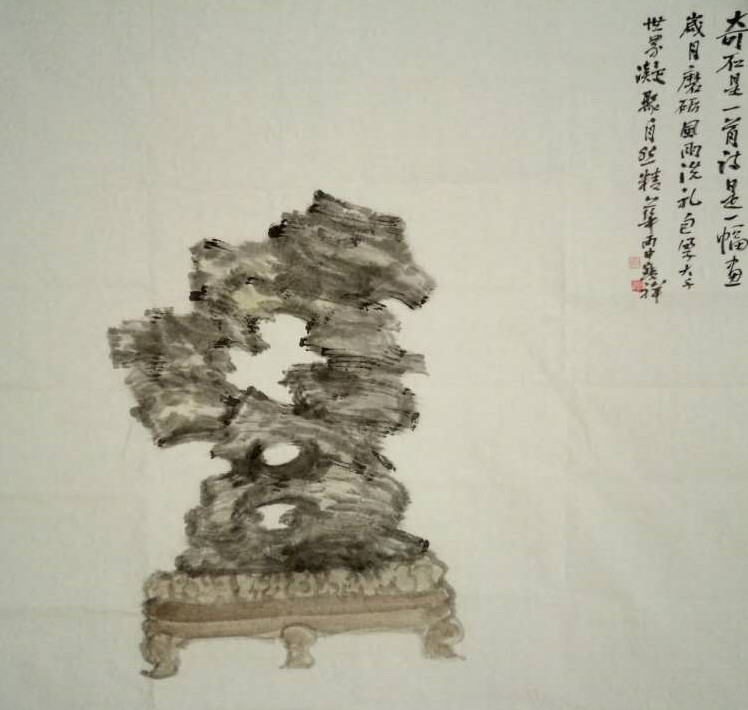 奇石是一首诗是一幅画
岁月磨砺风雨洗礼包罗大千
世界凝聚自然精華丙申